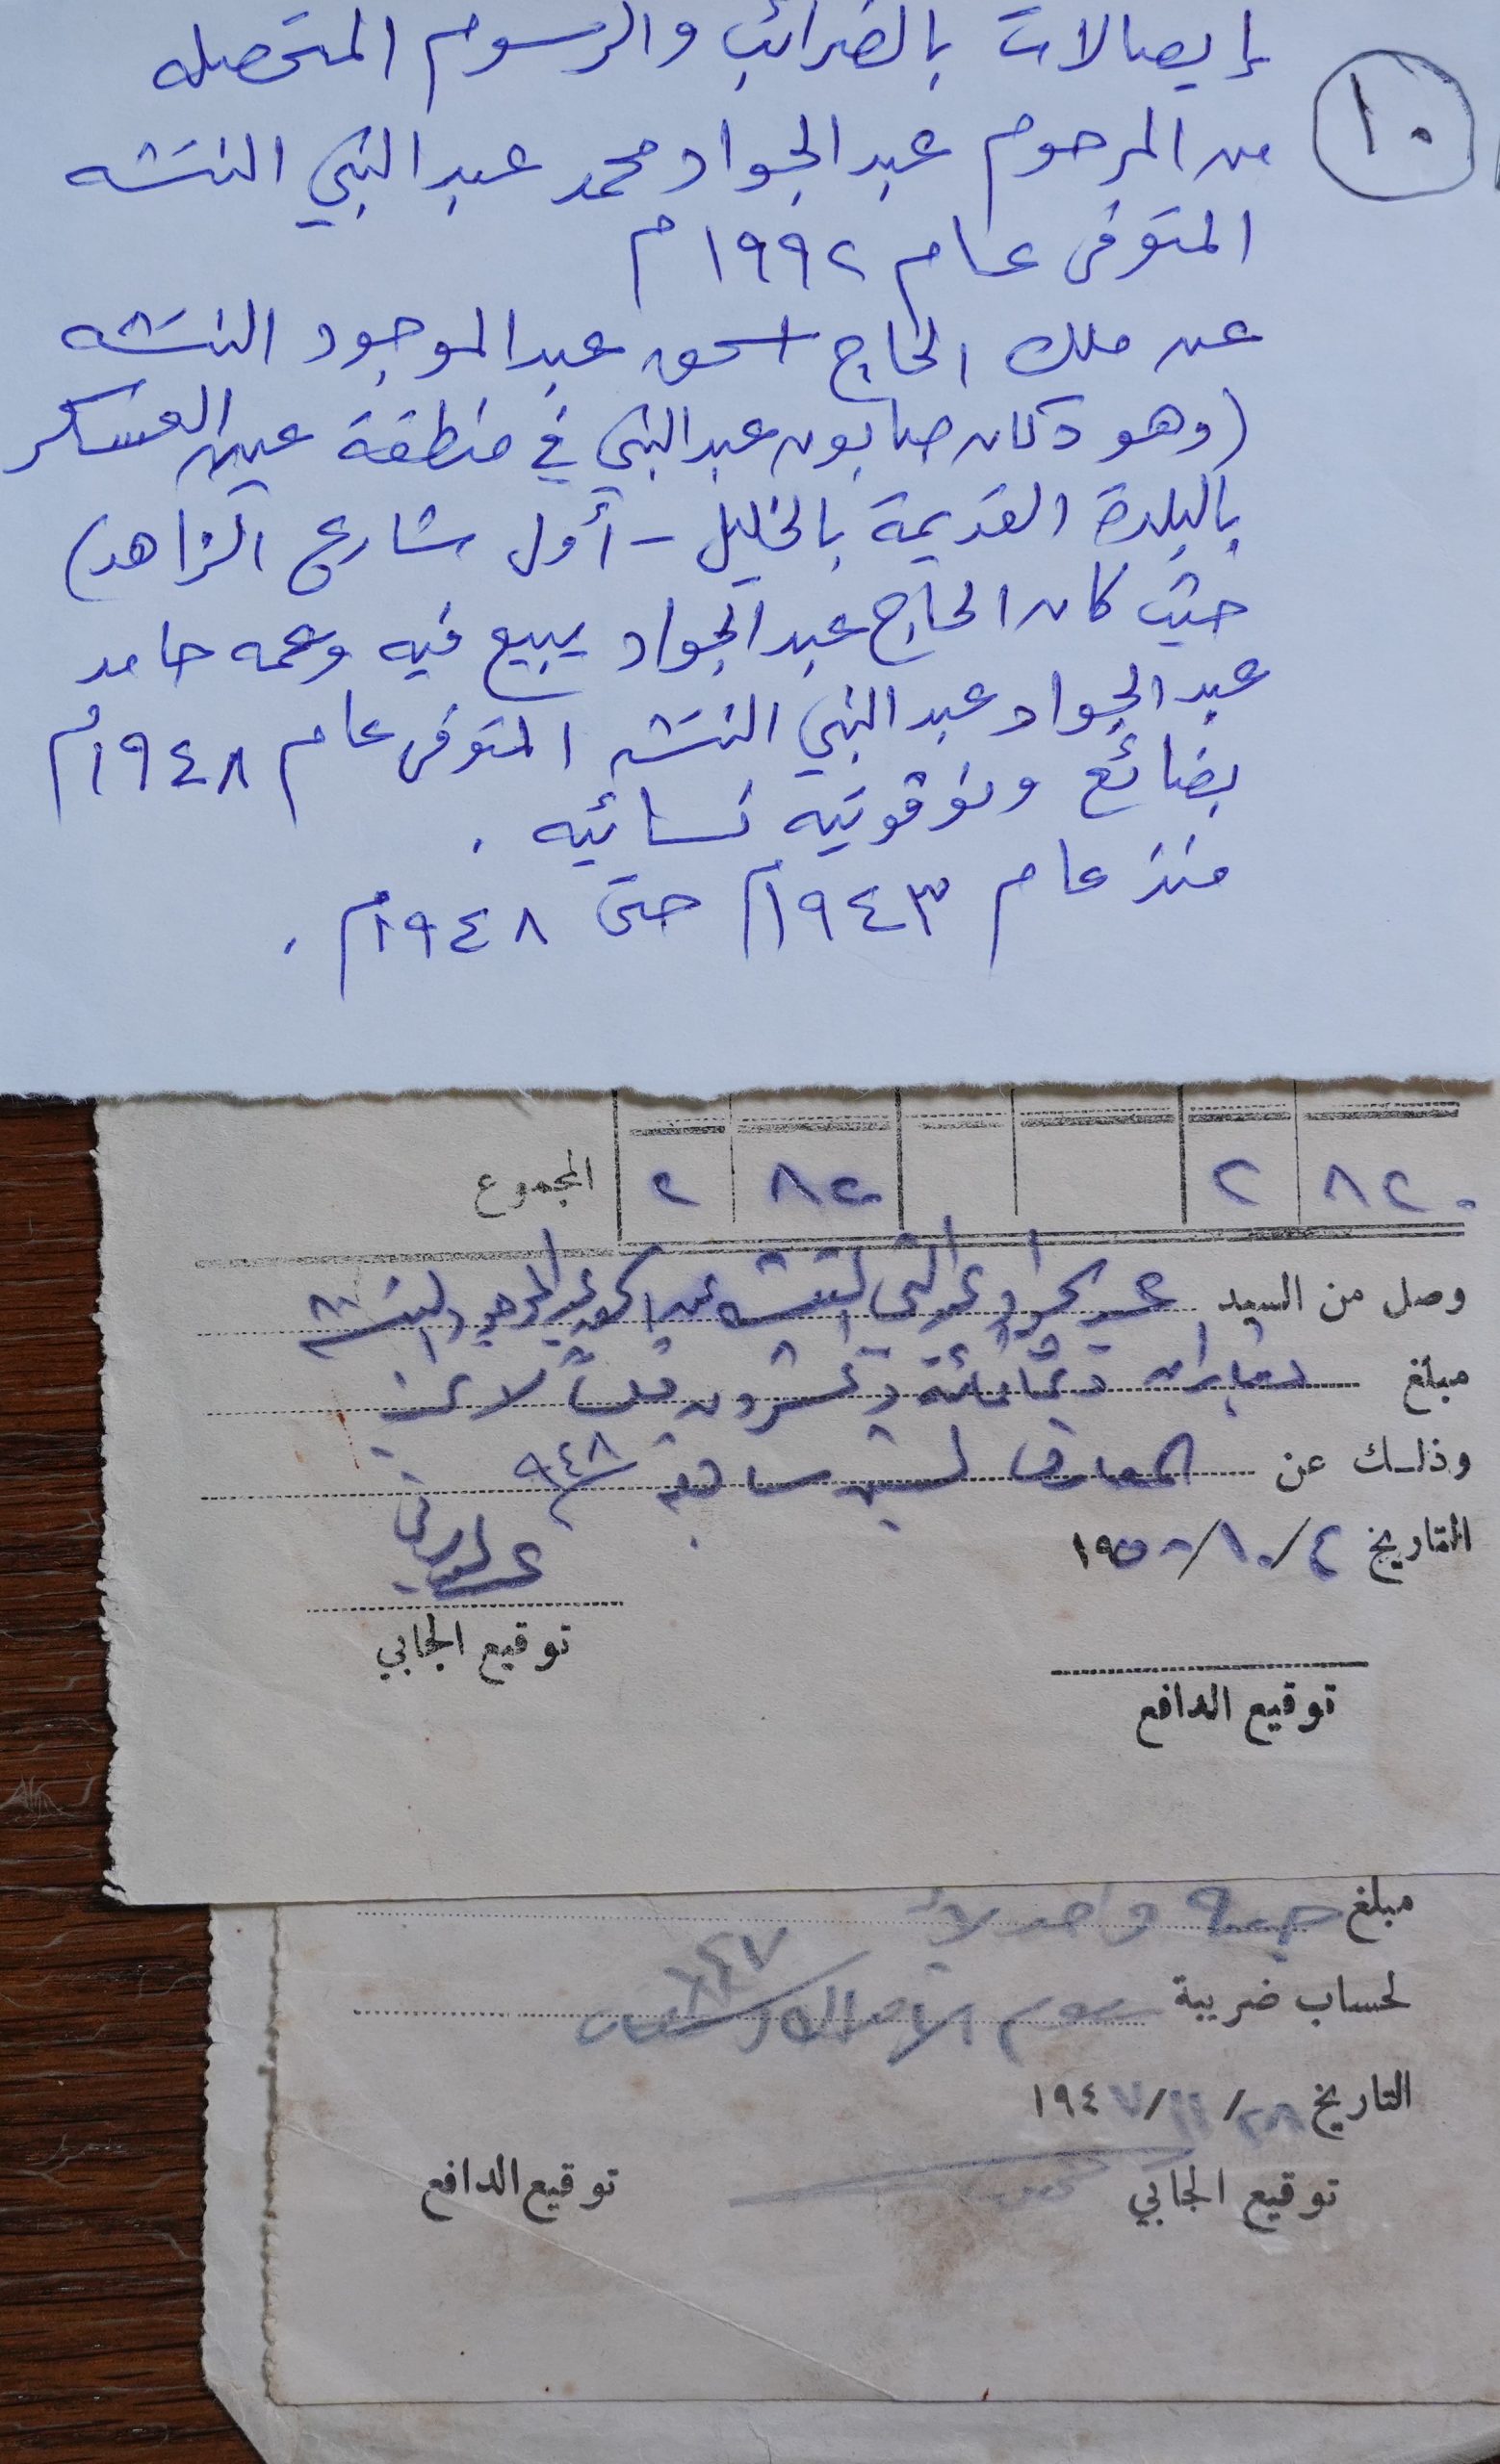 ١٠
إيصالات بالضرائب والرسوم المتحصله
من المرحوم عبد الجواد محمد عبد النبي النتشه
المتوفى عام ١٩٩٢م
عن ملك الحاج اسحق عبد الموجود النتشه
(وهو دكان صابون عبد النبي في منطقة عين العسكر
بالبلدة القديمة بالخليل - أول شارع الزاهد)
حيث كان الحاج عبد الجواد يبيع فيه وعمه حامد
عبد الجواد عبد النبي النتشه المتوفى عام ١٩٤٨م
بضائع ونوڤوتيه نسائيه .
منذ عام ١٩٤٣م حتى ١٩٤٨م .
٨٢٠ ٢ ٨٢٠ ٢ المجموع
وصل من السيد عبد الجواد عبد النبي النتشه عن اسحق عبد الموجود النتشه
مبلغ ديناران وثمانمائة وعشرون فلسا لا غير
وذلك عن المعارف لسنين سابقة ٩٤٨
التاريخ ٤/١٠/١٩٥٠
توقيع الجابي
توقيع الدافع
مبلغ جنيه واحد لا
لحساب ضريبة رسوم ٩٤٧
التاريخ ٢٨/١١/١٩٤٧
توقيع الجابي توقيع الدافع